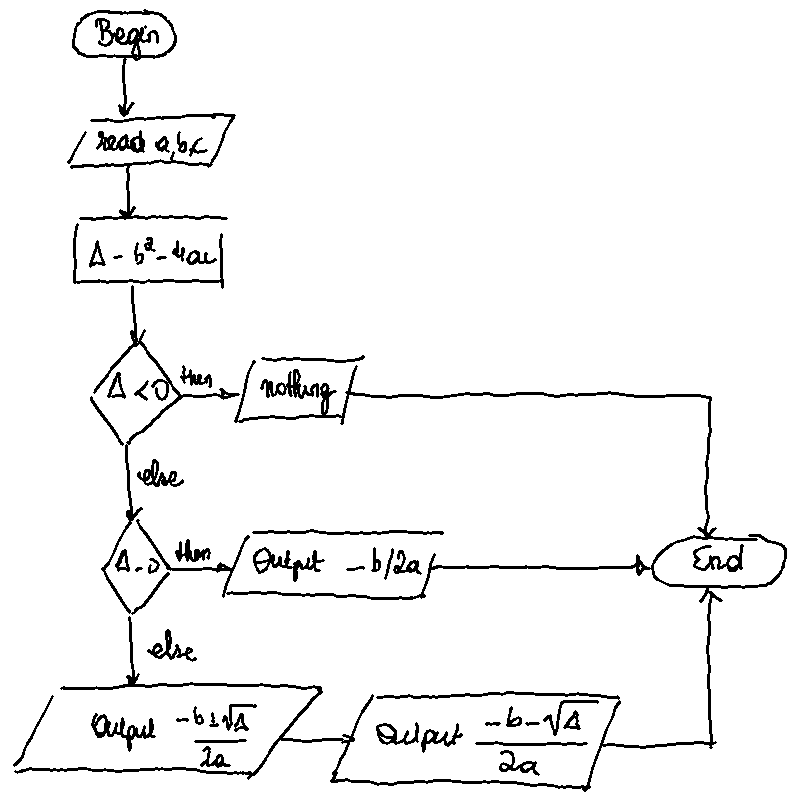 Begin
read a,b,c
Δ = b² - 4ac
Δ < 0
then
nothing
else
Δ = 0
then
Output - b/2a
End
else
Output (-b+√Δ)/2a
Output (-b-√Δ)/2a